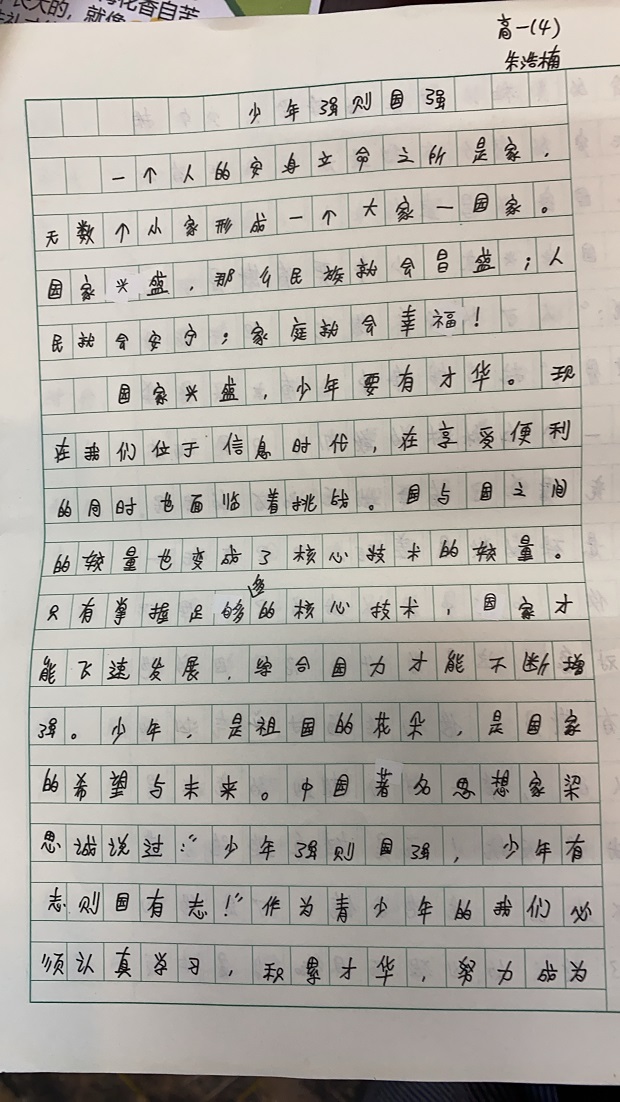 长大的，就像
花香自苦
高一(4)
朱浩楠
少年强则国强
一个人的安身立命之所是家，
无数个小家形成一个大家—国家。
国家兴盛，那么民族就会昌盛；人
民就会安宁；家庭就会幸福！
国家兴盛，少年要有才华。现
在我们位于信息时代，在享受便利
的同时也面临着挑战。国与国之间
的较量也变成了核心技术的较量。
只有掌握足够多的核心技术，国家才
能飞速发展，综合国力才能不断增
强。少年，是祖国的花朵，是国家
的希望与未来。中国著名思想家梁
思诚说过:“少年强则国强，少年有
志则国有志！”作为青少年的我们必
须认真学习，积累才华，努力成为